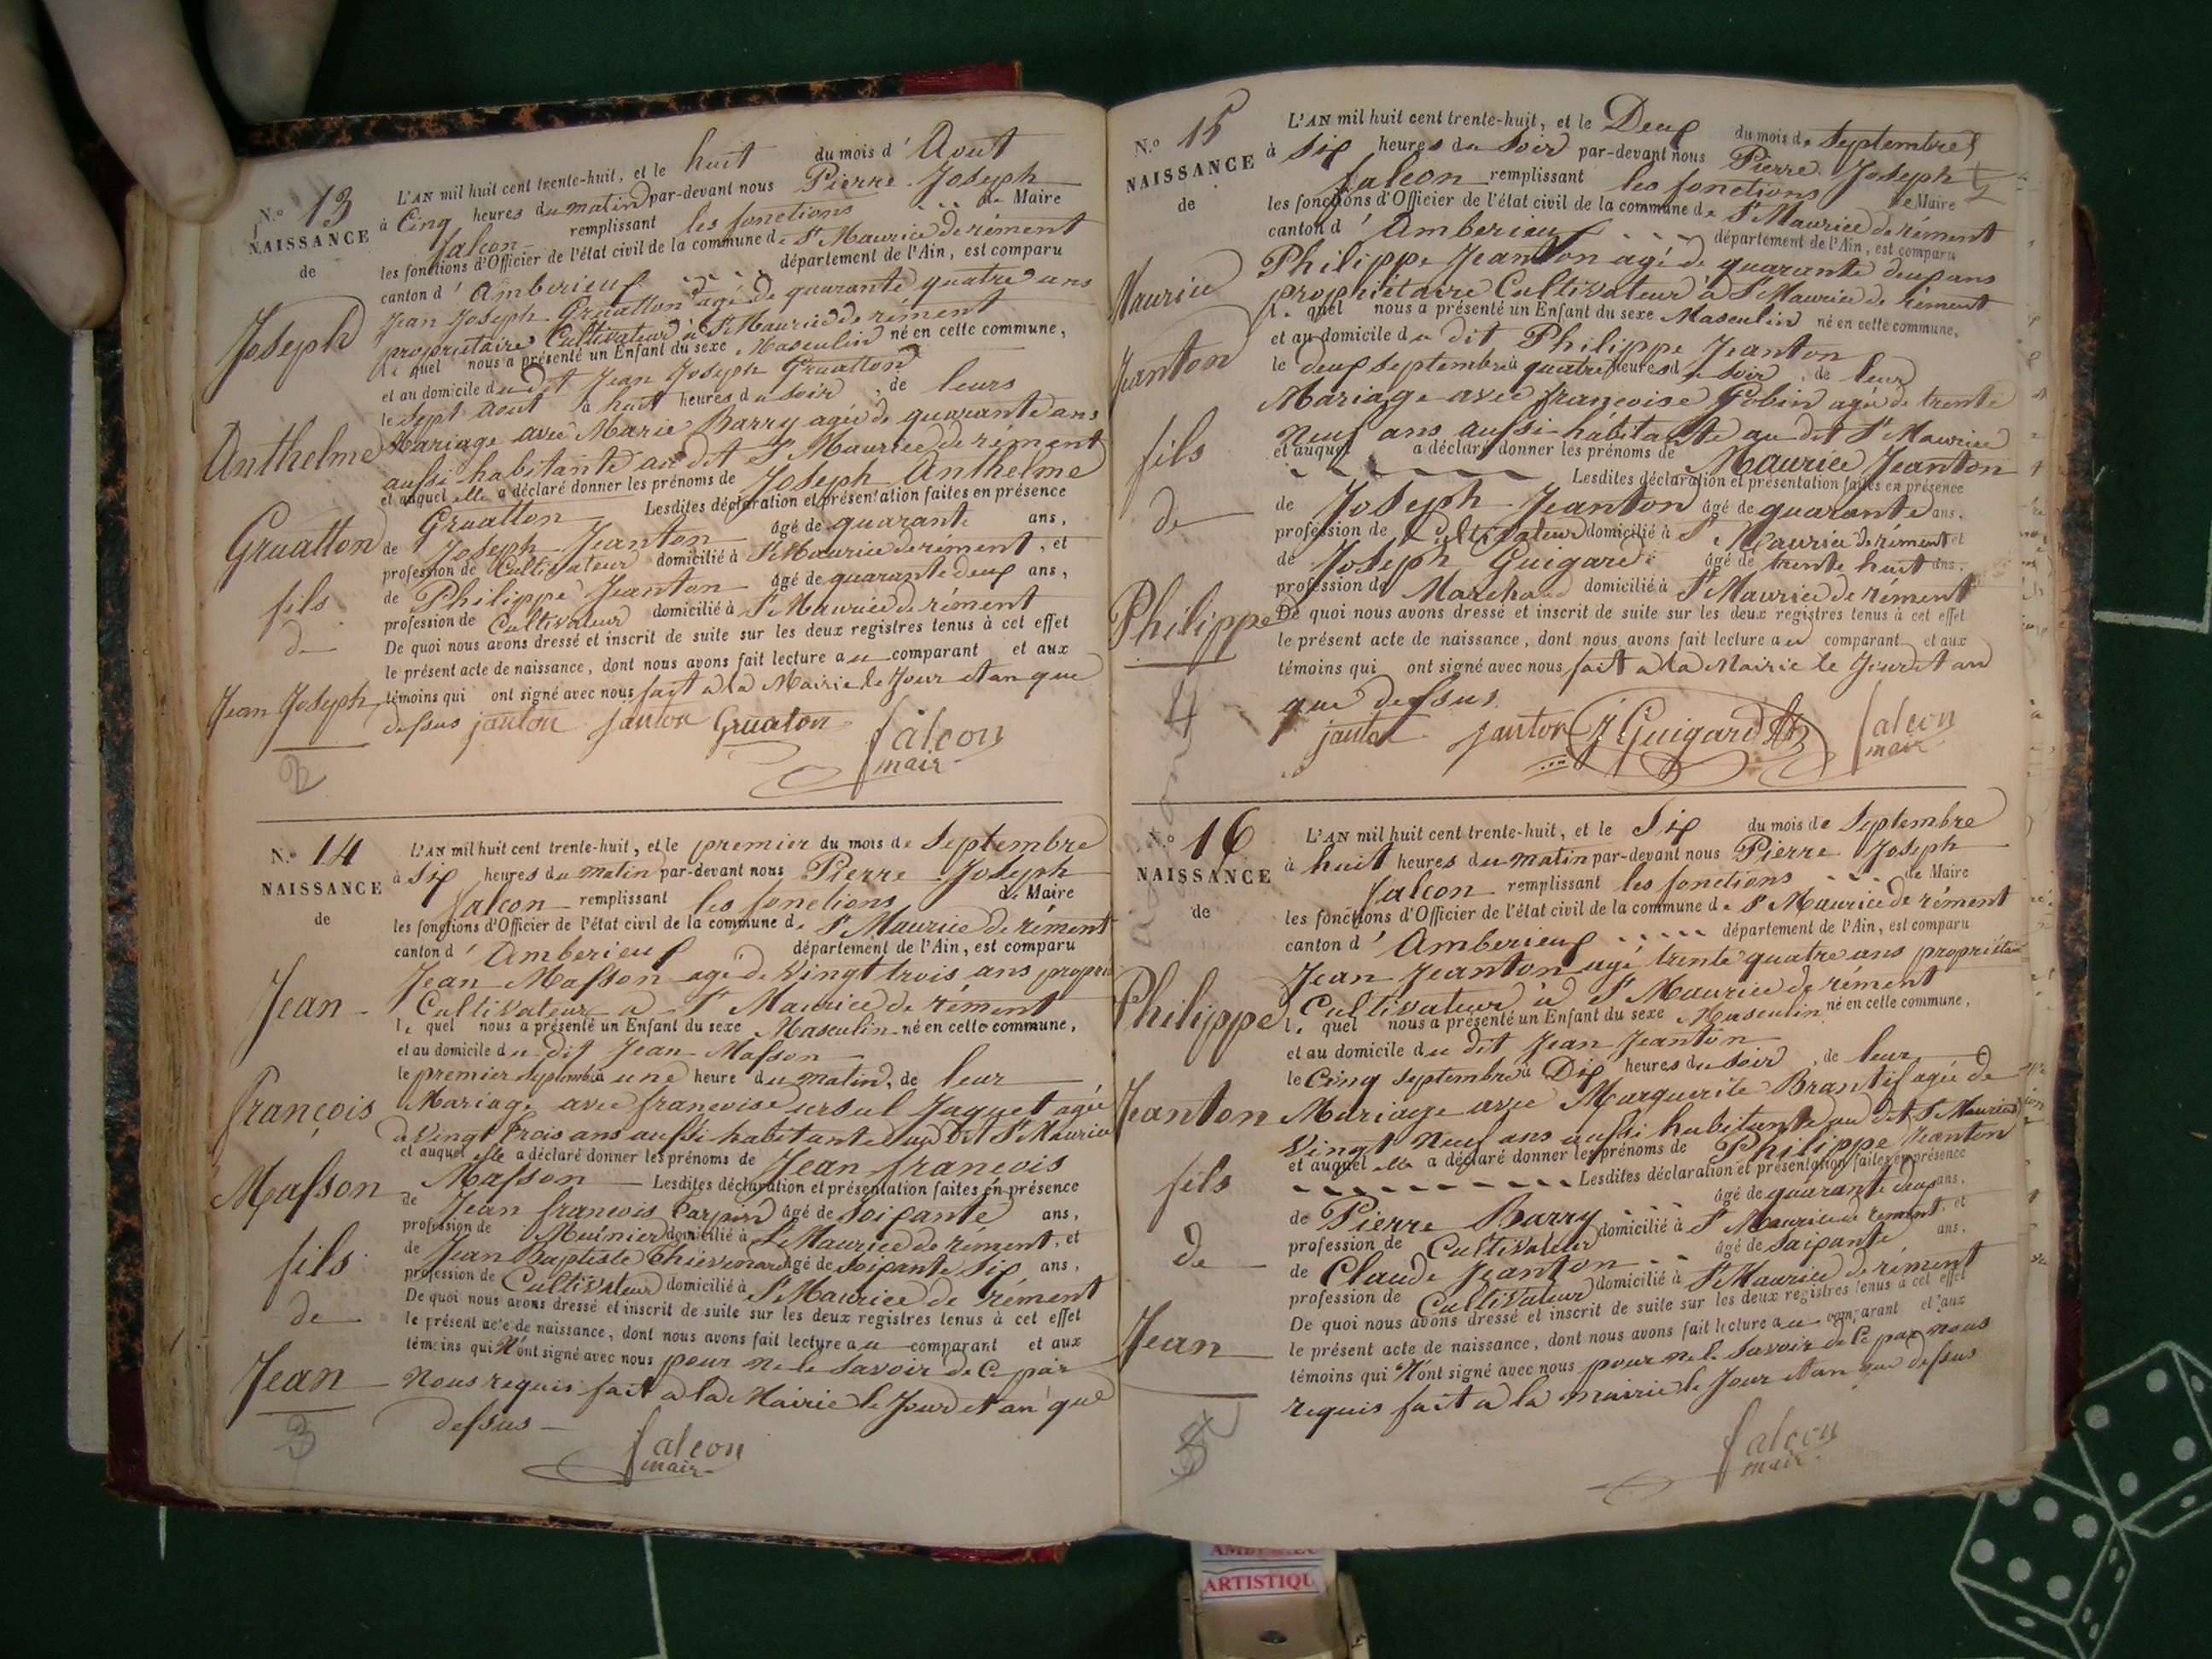 N.o 13
NAISSANCE
de
Joseph
Anthelme
Gruatton
fils
de
Jean Joseph
2
L'AN mil huit cent trente-huit, et le huit du mois d'Aout
à Cinq heures du matin par-devant nous Pierre Joseph
falcon remplissant les fonctions de Maire
les fonctions d'Officier de l'état civil de la commune de St Maurice de rément
canton d'Amberieux département de l'Ain, est comparu
Jean Joseph Gruatton agé de quarante quatre ans
propriétaire Cultivateur à St Maurice de rément
le quel nous a présenté un Enfant du sexe Masculin né en cette commune,
et au domicile du dit Jean Joseph Gruatton
le Sept Aout à huit heures du soir, de leurs
Mariage avec Marie Barry agée de quarante ans
aussi habitante au dit St Maurice de rément
et auquel elle a déclaré donner les prénoms de Joseph Anthelme
Gruatton Lesdites déclaration et présentation faites en présence
de Joseph Jeanton âgé de quarante ans,
profession de Cultivateur domicilié à St Maurice de rément, et
de Philippe Jeanton âgé de quarante deux ans,
profession de Cultivateur domicilié à St Maurice de rément
De quoi nous avons dressé et inscrit de suite sur les deux registres tenus à cet effet
le présent acte de naissance, dont nous avons fait lecture au comparant et aux
témoins qui ont signé avec nous fait a la Mairie le Jour et an que
dessus janton janton Gruaton falcon
mair
N.o 14
NAISSANCE
de
Jean
françois
Masson
fils
de
Jean
3
L'AN mil huit cent trente-huit, et le premier du mois de Septembre
à Six heures du matin par-devant nous Pierre Joseph
falcon remplissant les fonctions de Maire
les fonctions d'Officier de l'état civil de la commune de St Maurice de rément
canton d'Amberieux département de l'Ain, est comparu
Jean Masson agé de Vingt trois ans
Cultivateur a St Maurice de rément
le quel nous a présenté un Enfant du sexe Masculin né en cette commune,
et au domicile du dit Jean Masson
le premier septembre à une heure du matin, de leur
Mariage avec francoise ursul Jaquet agée
de Vingt trois ans aussi habitante au dit St Maurice
et auquel elle a déclaré donner les prénoms de Jean francois
Masson Lesdites déclaration et présentation faites en présence
de Jean francois âgé de soixante ans,
profession de Meûnier domicilié à St Maurice de rément, et
de Jean Baptiste âgé de soixante Six ans,
profession de Cultivateur domicilié à St Maurice de rément
De quoi nous avons dressé et inscrit de suite sur les deux registres tenus à cet effet
le présent acte de naissance, dont nous avons fait lecture au comparant et aux
témoins qui N'ont signé avec nous pour ne le Savoir de Ce par
Nous requis fait a la Mairie le Jour et an que
dessus
falcon
mair
N.o 15
NAISSANCE
de
Maurice
Jeanton
fils
de
Philippe
4
L'AN mil huit cent trente-huit, et le Deux du mois de Septembre
à Six heures du Soir par-devant nous Pierre Joseph
falcon remplissant les fonctions de Maire
les fonctions d'Officier de l'état civil de la commune de St Maurice de rément
canton d'Amberieux département de l'Ain, est comparu
Philippe Jeanton agé de quarante deux ans
propriétaire Cultivateur à St Maurice de rément
le quel nous a présenté un Enfant du sexe Masculin né en cette commune,
et au domicile du dit Philippe Jeanton
le deux septembre à quatre heures du soir, de leur
Mariage avec francoise Gobin agée de trente
Neuf ans aussi habitante au dit St Maurice
et auquel a déclaré donner les prénoms de Maurice Jeanton
Lesdites déclaration et présentation faites en présence
de Joseph Jeanton âgé de quarante ans,
profession de Cultivateur domicilié à St Maurice de rément et
de Joseph Guigard âgé de trente huit ans,
profession de Marchand domicilié à St Maurice de rément
De quoi nous avons dressé et inscrit de suite sur les deux registres tenus à cet effet
le présent acte de naissance, dont nous avons fait lecture au comparant et aux
témoins qui ont signé avec nous fait a la Mairie le Jour et an
que dessus.
janton janton J Guigard falcon
mair
N.o 16
NAISSANCE
de
Philippe
Jeanton
fils
de
Jean
5
L'AN mil huit cent trente-huit, et le Six du mois de Septembre
à huit heures du matin par-devant nous Pierre Joseph
falcon remplissant les fonctions de Maire
les fonctions d'Officier de l'état civil de la commune de St Maurice de rément
canton d'Amberieux département de l'Ain, est comparu
Jean Jeanton agé trente quatre ans propriétaire
Cultivateur à St Maurice de rément
le quel nous a présenté un Enfant du sexe Masculin né en cette commune,
et au domicile du dit Jean Jeanton
le Cinq septembre à Dix heures du soir, de leur
Mariage avec Marguerite Brantif agée de
Vingt Neuf ans aussi habitante au dit St Maurice
et auquel elle a déclaré donner les prénoms de Philippe Jeanton
Lesdites déclaration et présentation faites en présence
de Pierre Barry âgé de quarante deux ans,
profession de Cultivateur domicilié à St Maurice de rément, et
de Claude Jeanton âgé de Soixante ans,
profession de Cultivateur domicilié à St Maurice de rément
De quoi nous avons dressé et inscrit de suite sur les deux registres tenus à cet effet
le présent acte de naissance, dont nous avons fait lecture au comparant et aux
témoins qui N'ont signé avec nous pour ne le Savoir de Ce par nous
requis fait a la mairie le Jour et an que dessus
falcon
mair
ARTISTIQU